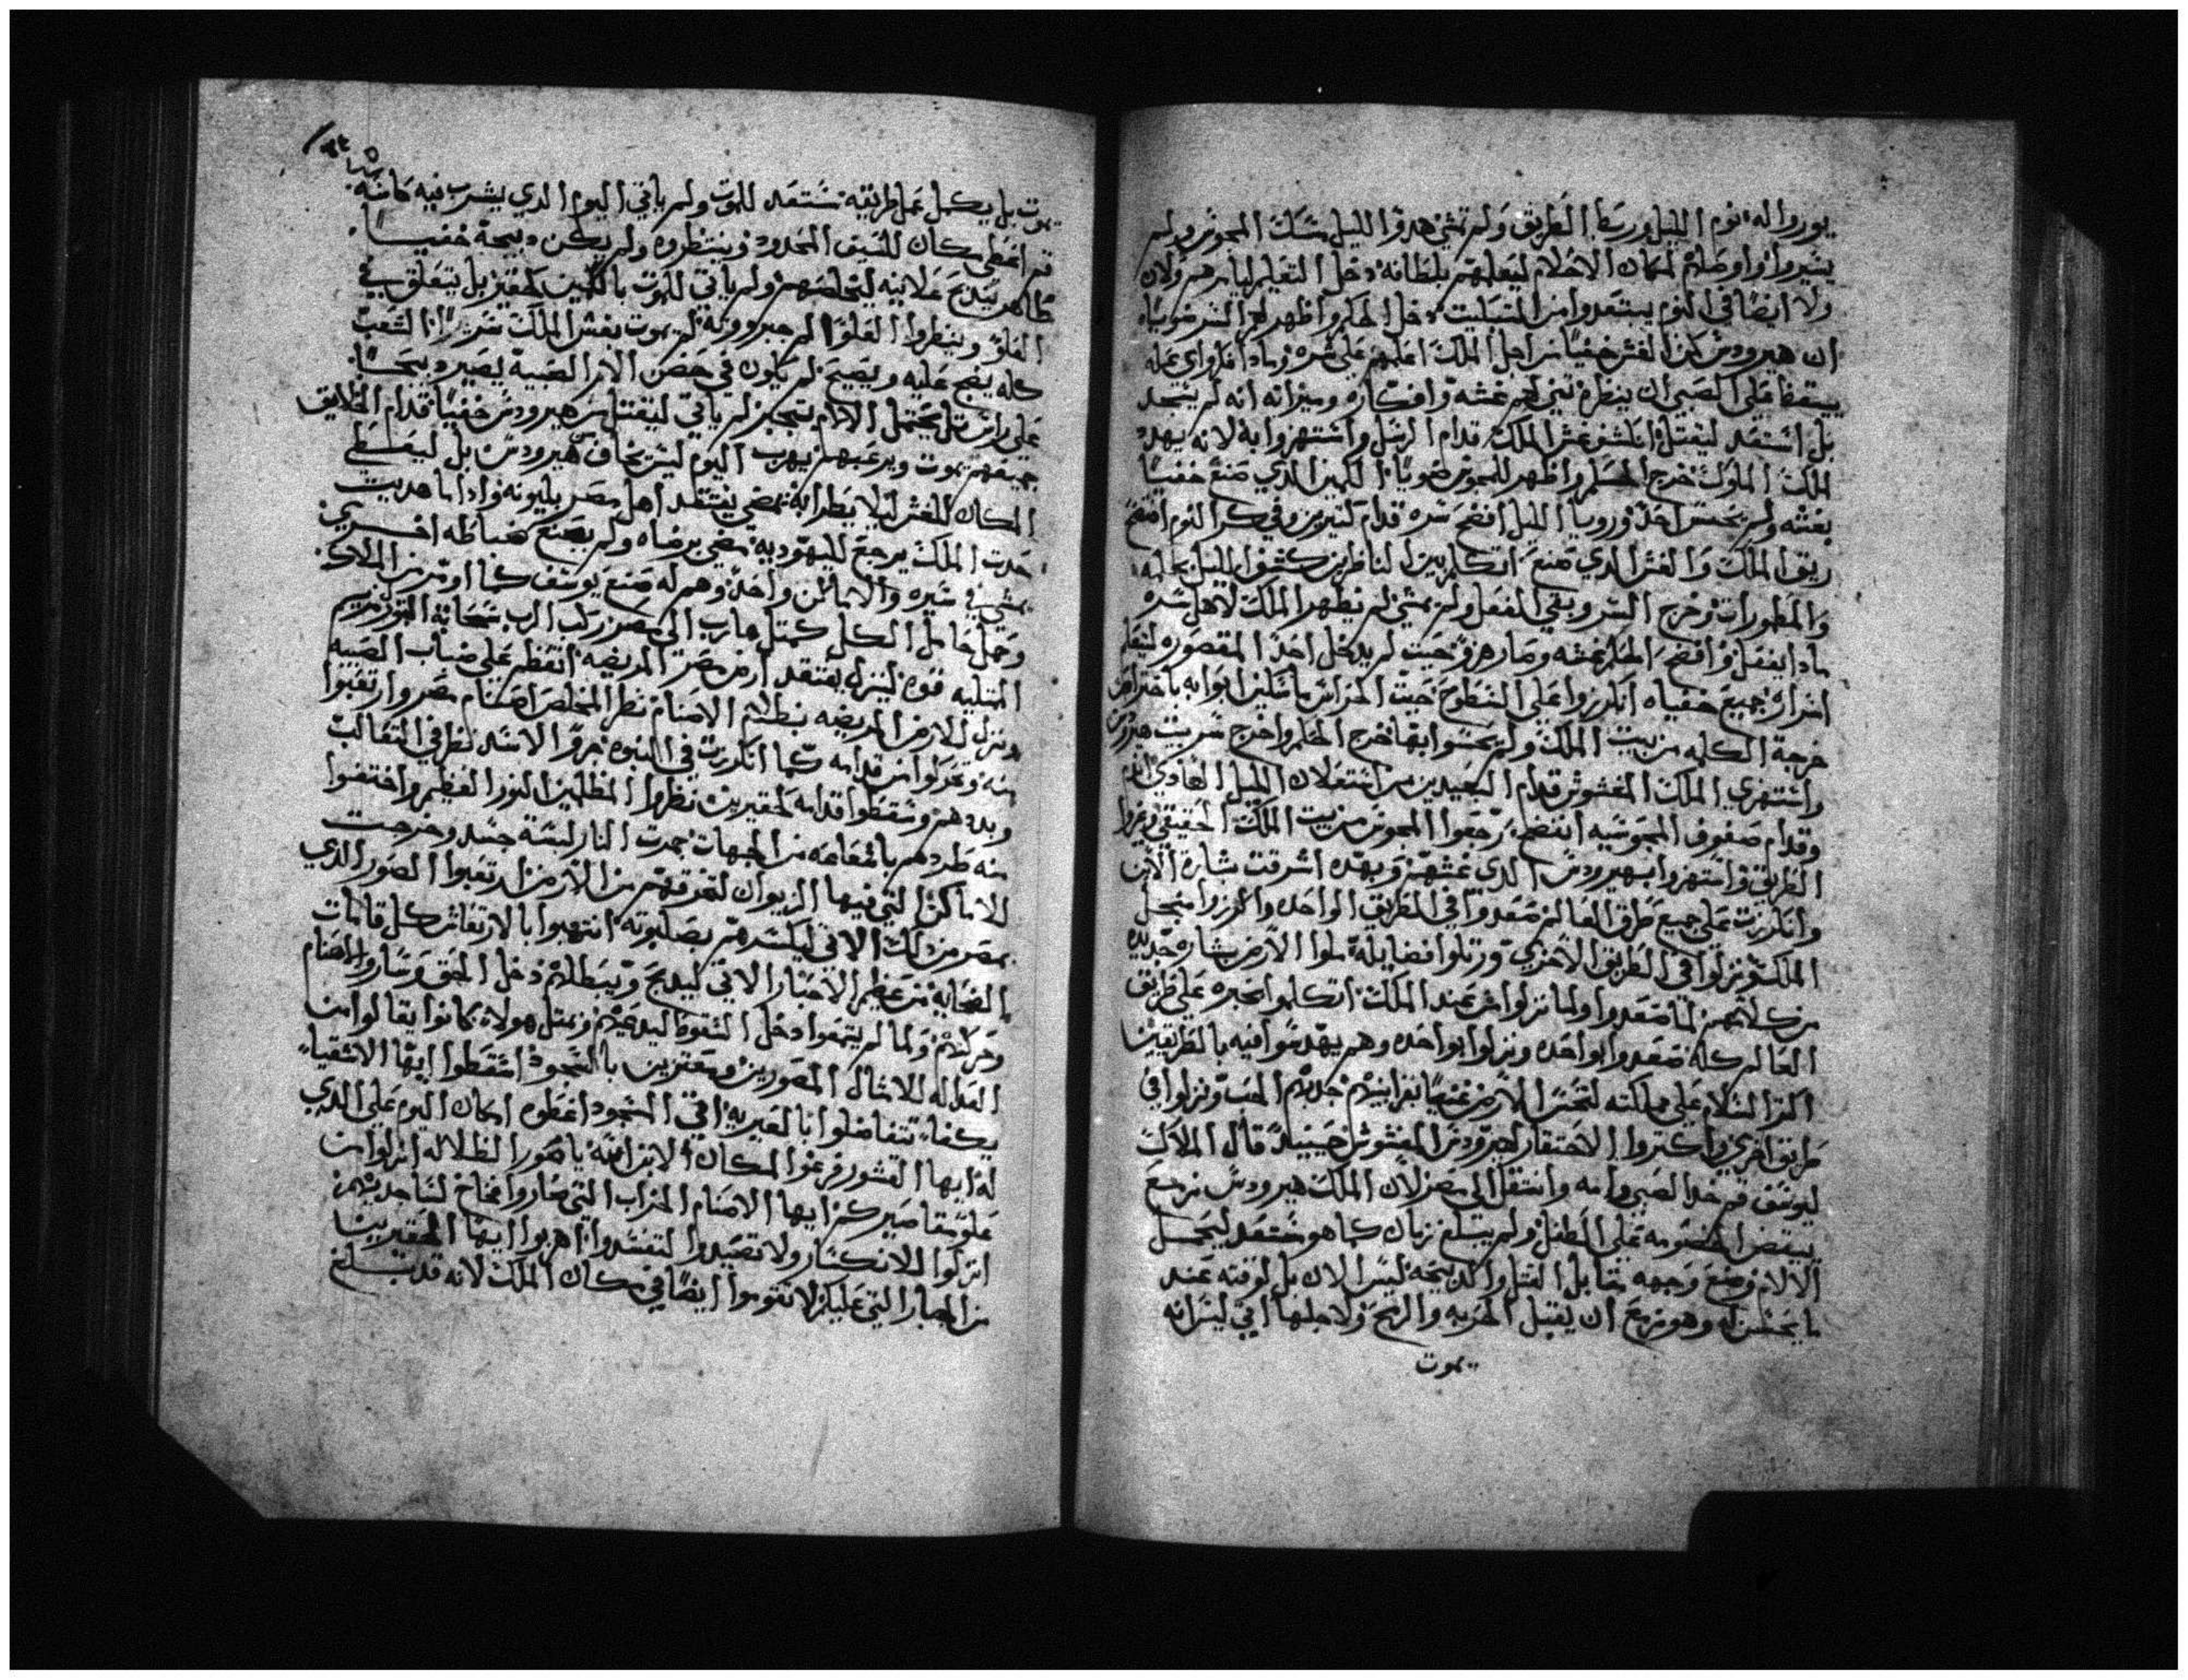 يوروا له نوم الليل ورسط الطريق ولم تمشي هدوا الليل مسك المجوس ولم
يشيروا واوصلهم لمكان الاحلام ليعلمهم بلطافه دخل التعبير ليامرهم ولان
ولا ايضا في النوم يبتعدوا من التسابيح دخل الحكم واظهر لهم السر ضوياه
ان هيرودس كنز الغش خفيا من اجل الملك اعلمهم على شره وماذا افكر اي عمله
يستقظ على الصبي ان ينظره تبي لهم غشه وافكاره وميزانه انه لم يسجد
بل استعد ليقتل انكشف غش الملك قدام الرسل واستهزوا به لانه يهدد
الملك الملوك خرج الحلم واظهر للمجوس ضويا الكمين الذي صنع خفيا
بغشه ولم يحس احد وروييا الليل افضح سره قدام كتيرين وفي كرا النوم افتضح
ريق الملك والغش الذي صنع اتكلم بين الناظرين كشفوا الليل
والمطورات وخرج السر وبقي الفعل ولم يمشي لم يظهر الملك لاهل سره
ماذا يفعل وافضح الحلم غشه وما رهم وحيت لم يدخل احد المقصوره ليعلم
اسراره جميع خفياه انكرزوا على السطوح حيت الحراس ماسكين ابوابه باحتراص
خرجة الكلمه من بيت الملك ولم يحسوا بها خرج الحلم واخرج سر بيت هيرودس
واستهزي الملك المغشوش قدام البعيدين من اشتعلات الليل الهادي
وقدام صفوف المجوسيه افتضح رجعوا المجوس من بيت الملك الحقيقي وغيروا
الطريق واستهزوا بهيرودس الذي غشهم وبهده اشرقت بشارة الابن
وانكرزت على جميع طرق العالم صعدوا في الطريق الواحد واكرزوا مجل
الملك ونزلوا في الطريق الاخري ورتلوا فضايله ملوا الارض بشاره جديده
من كلامهم لما صعدوا ولما نزلوا من عند الملك اتكلموا بخبره على طريق
العالم كله صعدوا بواحده ونزلوا بواحده وهم يهدسوا فيه بالطريقين
اكثر السلام على مملكته لتحسن الارض غنيا بقرابينهم جلبهم الحب ونزلوا في
طريق اخري واكتروا الاحتقار لهيرودس المغشوش حينيد قال الملاك
ليوسف قم خد الصبي وامه وانتقل الى مصر لان الملك هيرودس مزمع
يبتغض الخصومه على الطفل ولم يبلغ زمان كما هو مستعد ليحمل
الالام وضع وجهه مقابل القتل والدبيحه ليس الان بل لوقته عند
ما يحسن له وهو مزمع ان يقبل الحربه والرمح ولاجلها اتي ليس انه
يموت
يموت بل يكمل عمل طريقه مستعد للموت ولم ياتي اليوم الذي يشرب فيه كاسه
قم اعطي مكان للسيف المحدود وينتظره ولم يكن دبيحة خفيا
ظاهر يندبح علانيه ليخلصهم ولم ياتي للموت بالكمين كحقير بل يتعلق في
العلو وينظروا العلو الم جبروته لم يموت بغش الملك سرا الشعب
كله يضج عليه ويصيح لم يكون في حضن الام الصبيه يصير دبيحا
على راس تل يحتمل الالام بتجبر لم ياتي ليقتل من هيرودس خفيا قدام الخلايق
جميعهم يموت ويرعبهم يهرب اليوم ليس يخاف من هيرودس بل ليعطي
المكان للغش ليلا يظرابه يمضي يفتقد اهل مصر بليونه وادا ما هديت
حدت الملك يرجع لليهوديه يمضي برضاه ولم يصنع كضباطه اخرين
يمشي في سيره والاماكن واحده وهم له صنع يوسف كما اومر من الملاك
وحمل حامل الكل كمتل هارب الى مصر ركب الرب سحابة النور مريم
الممتليه قوه لينزل يفتقد ارض مصر المريضه اتعظم على مناب الصبيه
ونزل للارض المريضه بطلهم الاصنام نظر المخلص اصنام مصر وارتعبوا
منه وتحركوا من قدامه كما انكرزت في النبوه جرو الاسد نظر في التعالب
وبددهم وسقطوا قدامه كحقيرين نظروا المظلمين النور العظيم واختفوا
منه طردهم باشعاعه من الجهات جمرت النار لبسة جسد وخرجت
للاماكن التي فيها الزيوان لتحرقهم من الارض ارتعبوا الصور الذي
بمصر من دلك الاتي ليكسرهم بصلبوته انتهبوا بالارتعاش كل قامات
الضحايه من عظيم الاحبار الاتي ليدبح ويبطلهم دخل الحق وساروا الاصنام
وحركتهم ولما لم يتمهوا دخل السقوط ليدعيهم ومتل هولاء كانوا يقالوا من
العداله للامثال المصورين ومعتزين بالسجود اسقطوا ايها الاشقيا
يكفا تتفاضلوا انا الغيريه اتي السجود اعطوه امكان اليوم على الدي
له ايها القشور فرغوا المكان الابن انيه يا صور الظلاله انزلوا من
علو مقاصيركم ايها الاصنام الخراب التي صاروا فخاخ لساجديهم
اتركوا للانكسار ولا تصيدوا لتفسدوا اهربوا ايها الحقيرين
من الجبار التي عليكم لا تقوموا ايضا في مكان الملك لانه قد بلغ